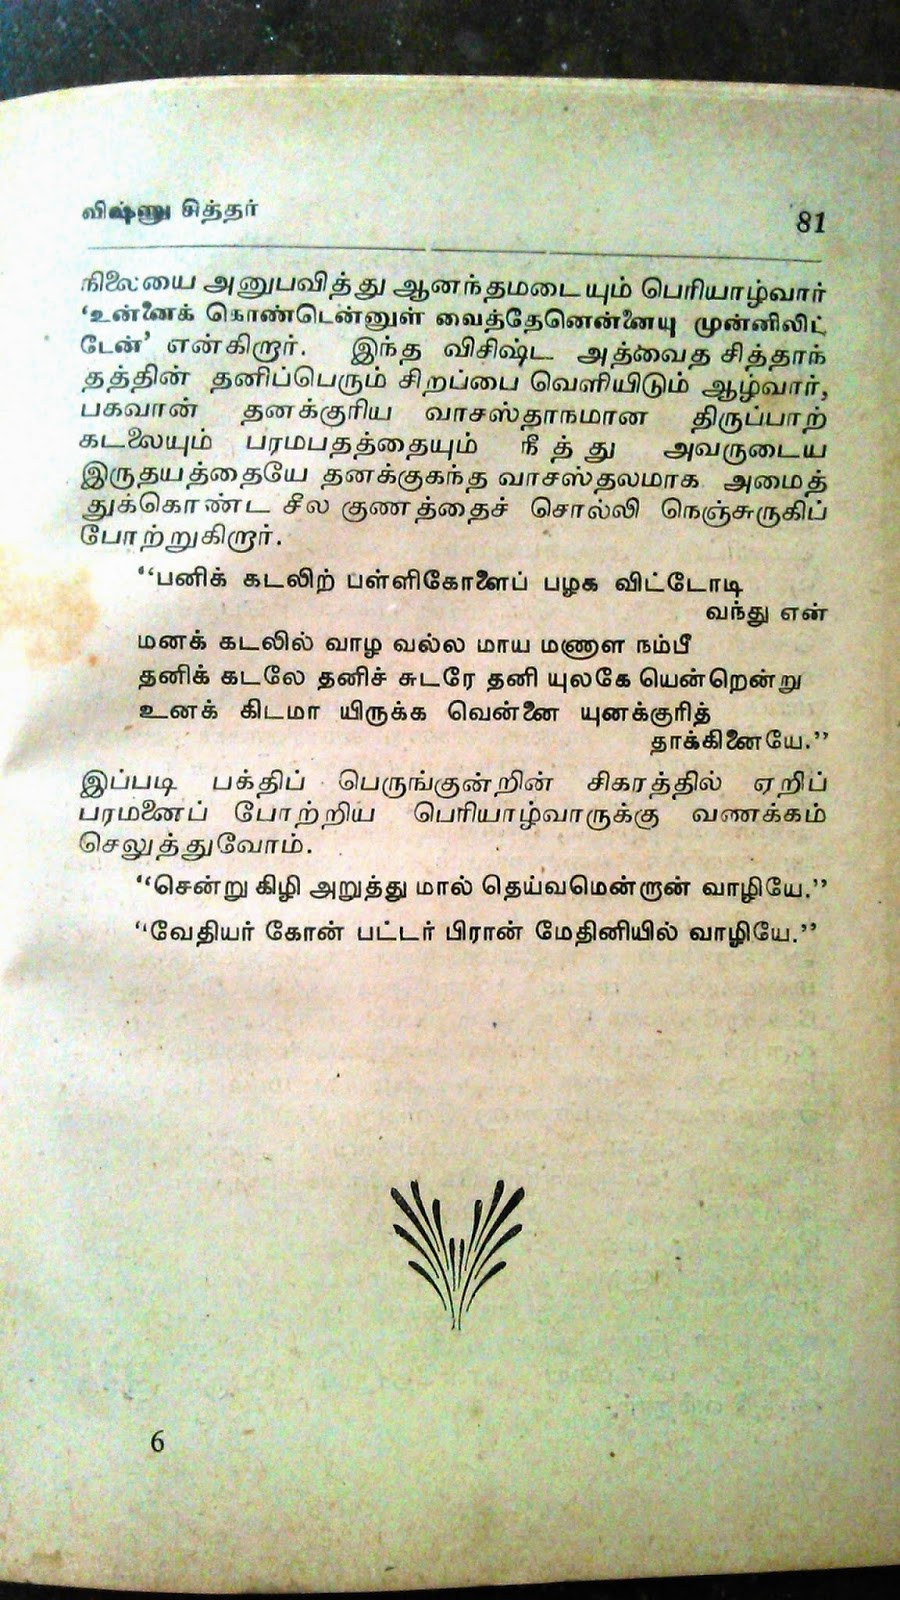 விஷ்ணு சித்தர் 81
நிலையை அனுபவித்து ஆனந்தமடையும் பெரியாழ்வார்
‘உன்னைக் கொண்டென்னுள் வைத்தேனென்னையு முன்னிலிட்
டேன்’ என்கிறார். இந்த விசிஷ்ட அத்வைத சித்தாந்
தத்தின் தனிப்பெரும் சிறப்பை வெளியிடும் ஆழ்வார்,
பகவான் தனக்குரிய வாசஸ்தாநமான திருப்பாற்
கடலையும் பரமபதத்தையும் நீத்து அவருடைய
இருதயத்தையே தனக்குகந்த வாசஸ்தலமாக அமைத்
துக்கொண்ட சீல குணத்தைச் சொல்லி நெஞ்சுருகிப்
போற்றுகிறார்.
“பனிக் கடலிற் பள்ளிகோளைப் பழக விட்டோடி
வந்து என்
மனக் கடலில் வாழ வல்ல மாய மணாள நம்பீ
தனிக் கடலே தனிச் சுடரே தனி யுலகே யென்றென்று
உனக் கிடமா யிருக்க வென்னை யுனக்குரித்
தாக்கினையே.”
இப்படி பக்திப் பெருங்குன்றின் சிகரத்தில் ஏறிப்
பரமனைப் போற்றிய பெரியாழ்வாருக்கு வணக்கம்
செலுத்துவோம்.
“சென்று கிழி அறுத்து மால் தெய்வமென்றான் வாழியே.”
“வேதியர் கோன் பட்டர் பிரான் மேதினியில் வாழியே.”
6